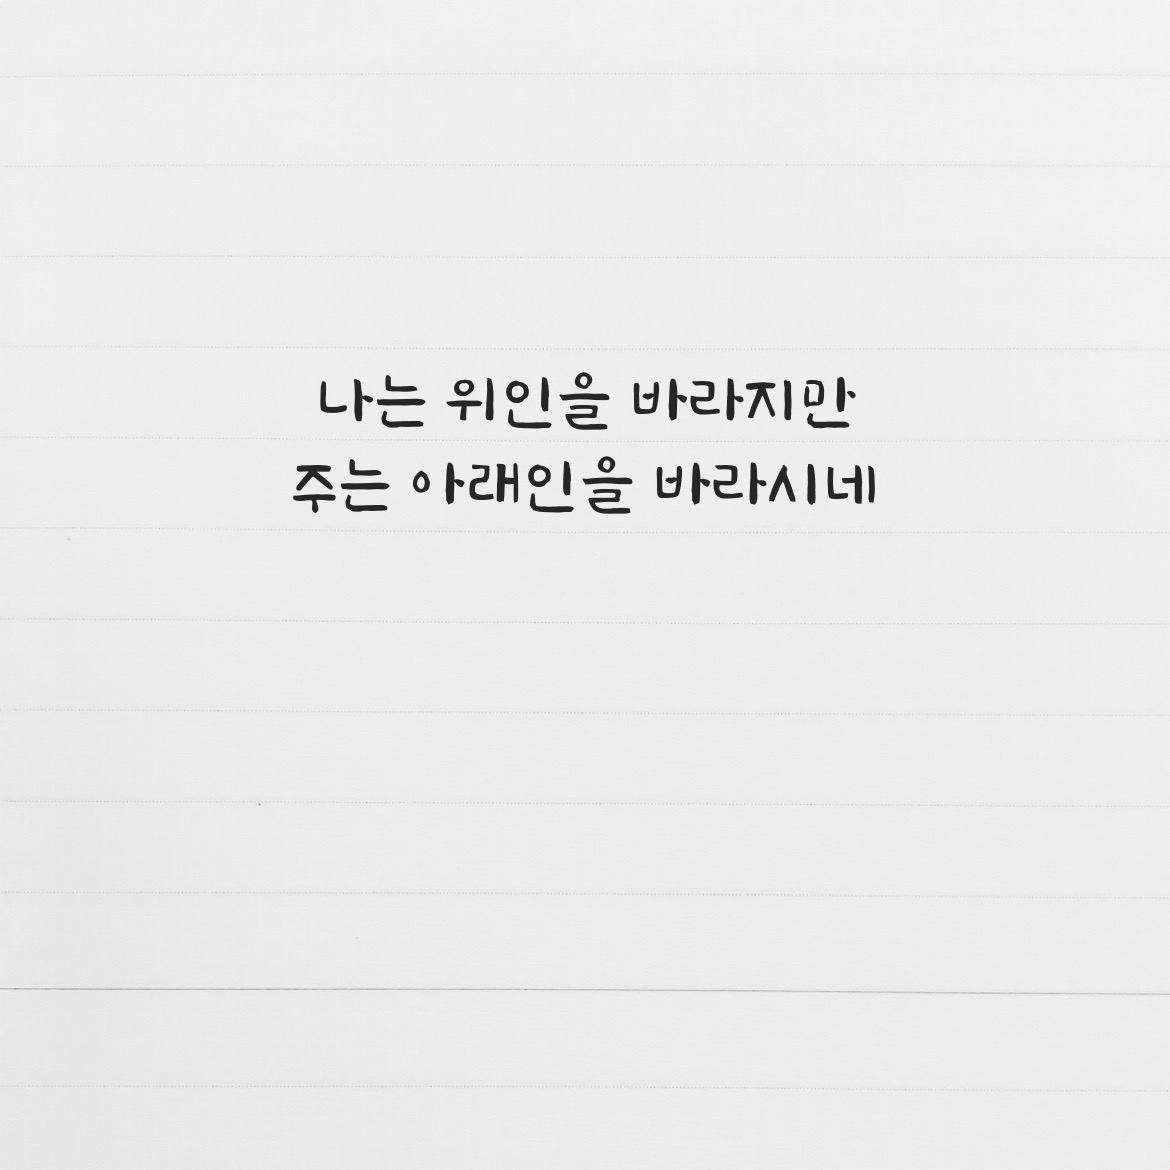 나는 위인을 바라지만
주는 아래인을 바라시네